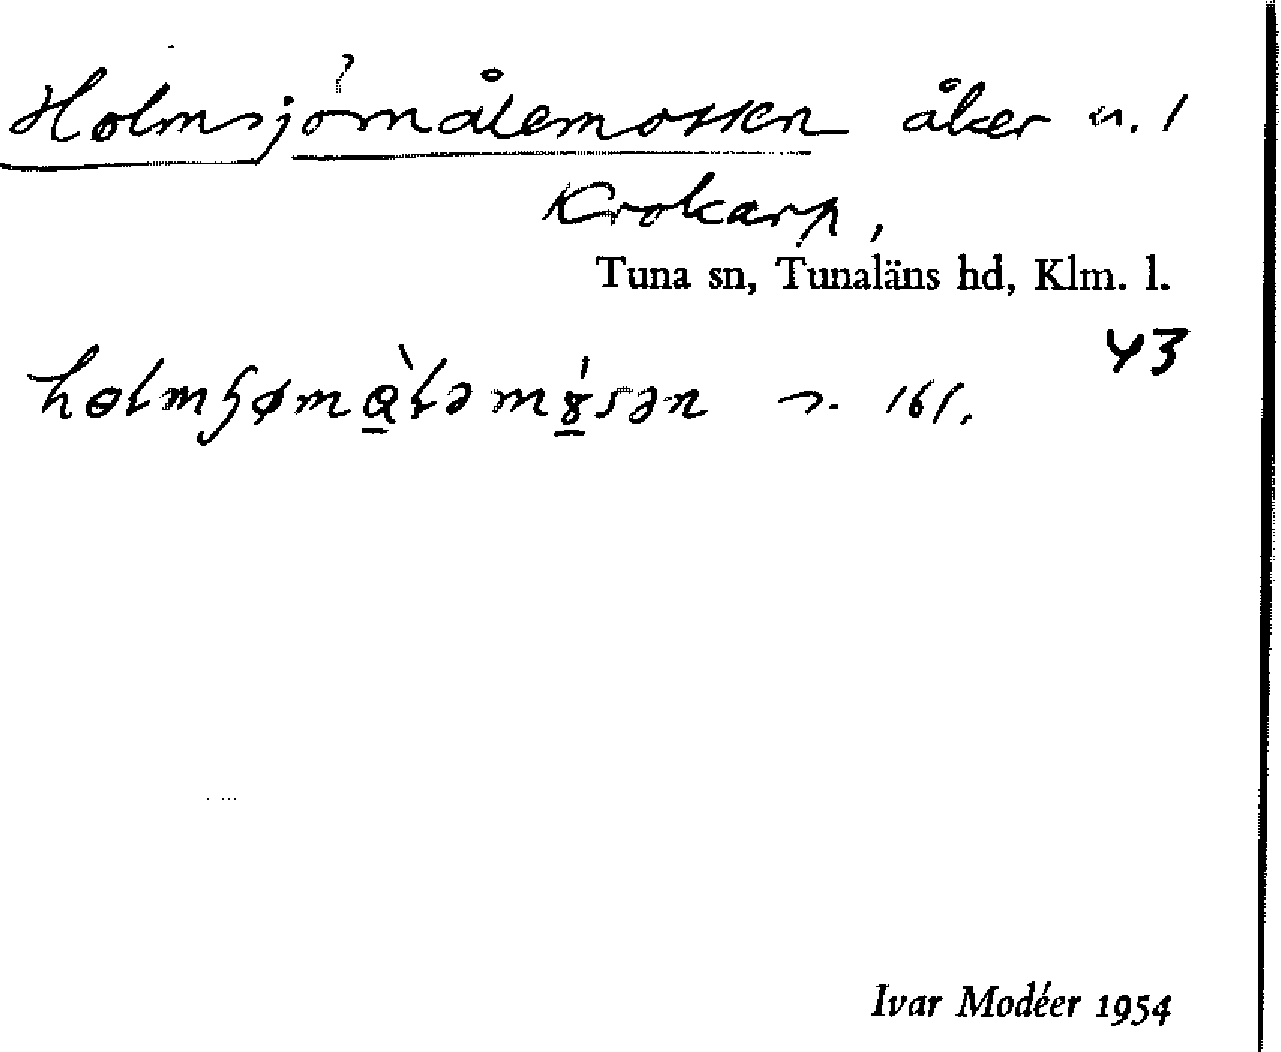 Holmsjömålemossen åker u. 1
Krokarp,
Tuna sn, Tunaläns hd, Klm. l.
43
161.
Ivar Modéer 1954